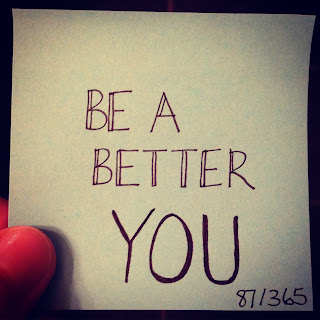 BE A
BETTER
YOU
87/365